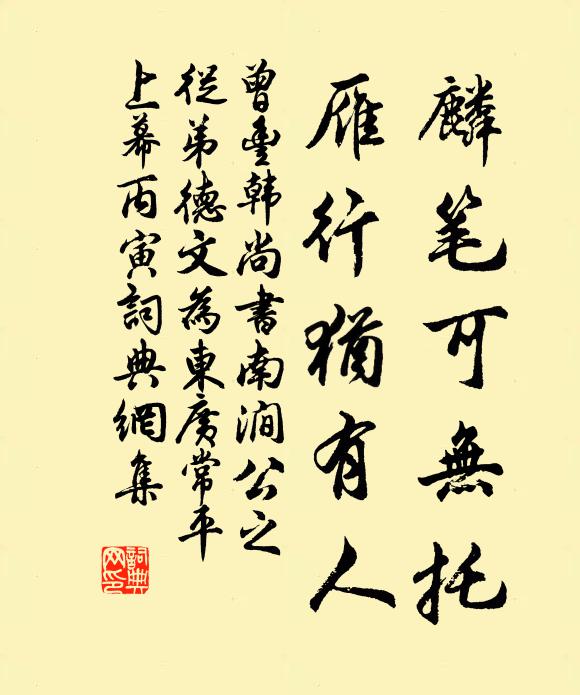 麟笔可無托
雁行猶有人
曾豊韩尚書南澗公之
從弟德文為東廣常平
上幕丙寅詞典網集
詞典
网印